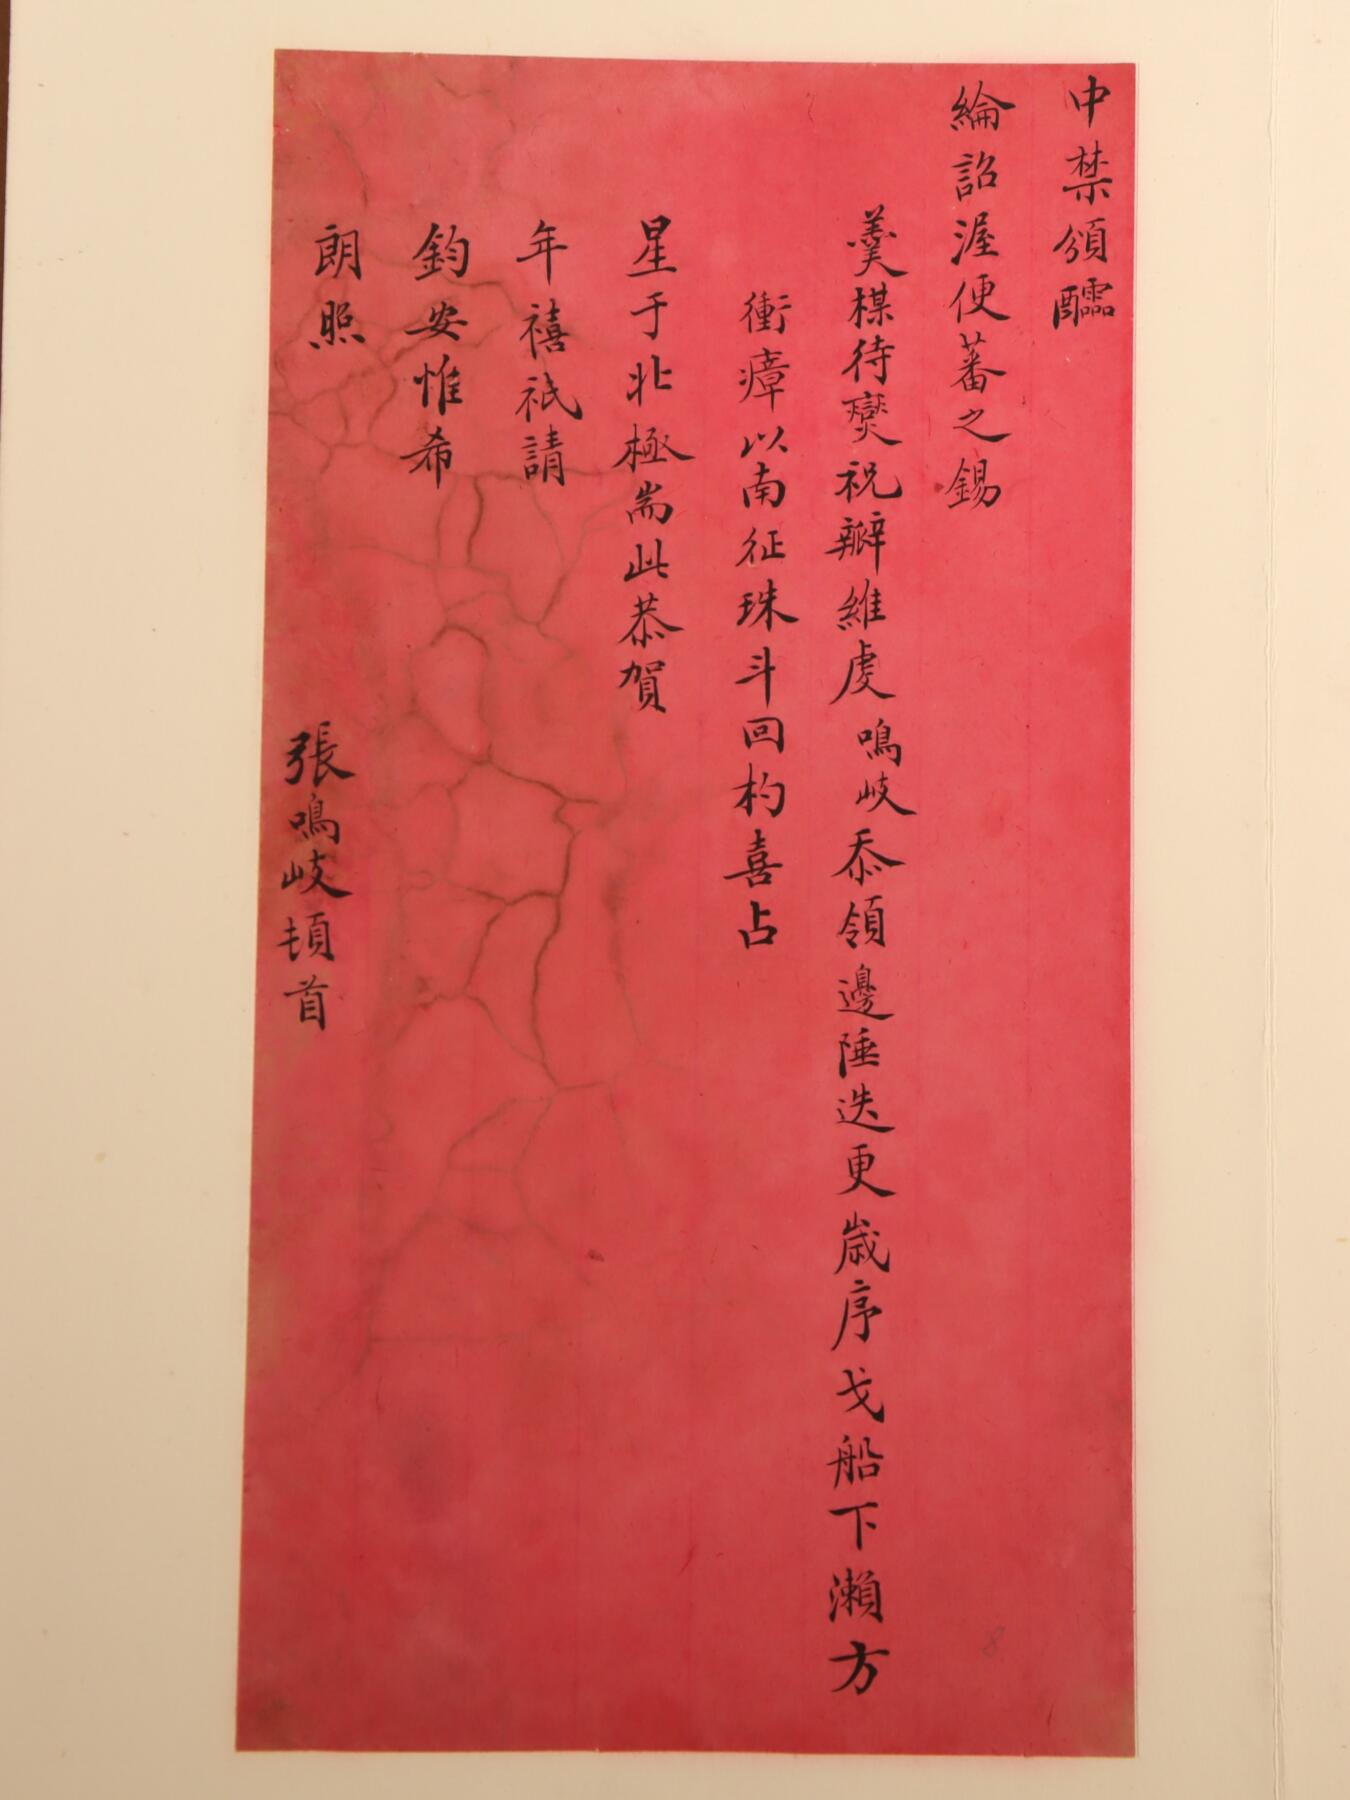 中禁頒醽
綸詔渥便蕃之錫
羹楳待爕祝瓣維虔鳴岐忝領邊陲迭更歲序戈船下瀨方
衝瘴以南征珠斗回杓喜占
星于北極耑此恭賀
年禧祇請
鈞安惟希
朗照
張鳴岐頓首
8